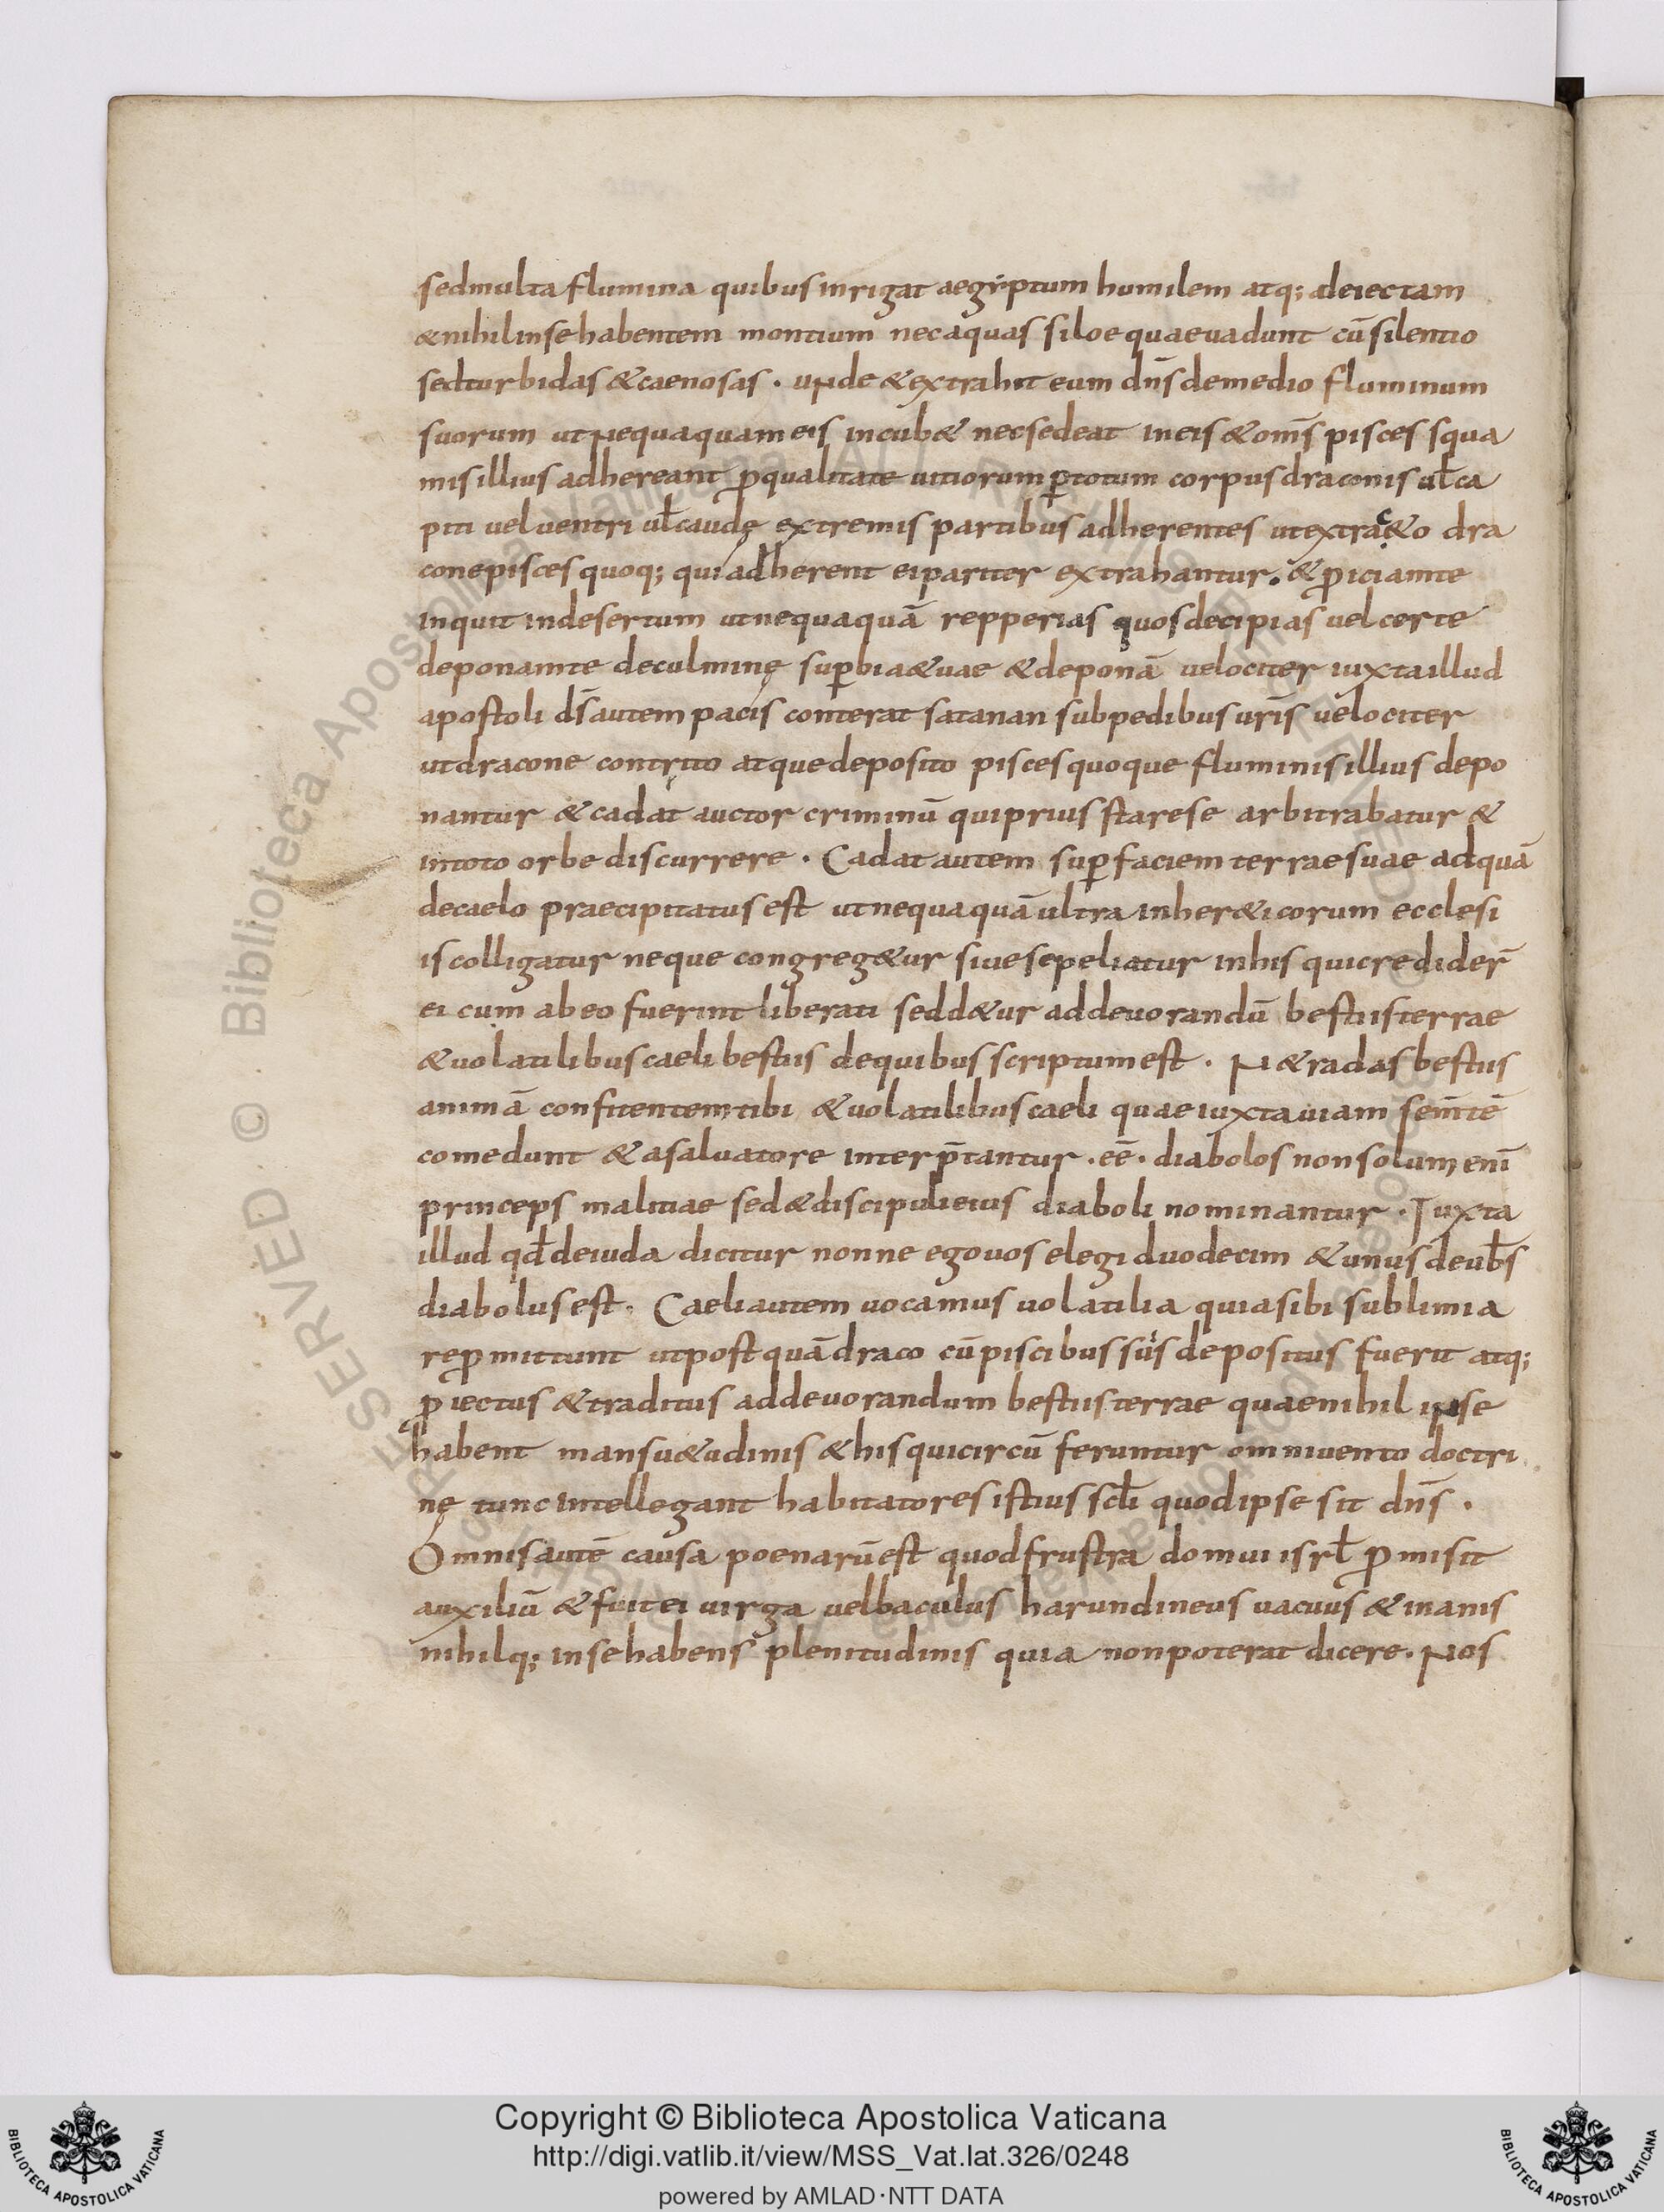 sed multa flumina quibus inrigat aegyptum humilem atq; deiectam
& nihil in se habentem montium nec aquas siloe quae uadunt cū silentio
sed turbidas & caenosas . unde & extrahit eum dn̄s de medio fluminum
suorum ut nequaquam eis incub& nec sedeat in eis & om̄s pisces squa
mis illius adhereant ꝓ qualitate uitiorum ꝑ totum corpus draconis ul̄ ca
piti uel uentri ul̄ caudę extremis partibus adherentes ut extracto dra
cone pisces quoq; qui adherent ei pariter extrahantur . & ꝓiciam te
inquit in desertum ut nequaquā repperias quos decipias uel certe
deponam te de culmine suꝑbiae tuae & deponā uelociter iuxta illud
apostoli ds̄ autem pacis conterat satanan sub pedibus ur̄is uelociter
ut dracone contrito atque deposito pisces quoque fluminis illius depo
nantur & cadat auctor criminū qui prius stare se arbitrabatur &
in toto orbe discurrere . Cadat autem suꝑ faciem terrae suae ad quā
de caelo praecipitatus est ut nequaquā ultra in her&icorum ecclesi
is colligatur neque congreg&ur siue sepeliatur in his qui credider̄
ei cum ab eo fuerint liberati sed d&ur ad deuorandū bestiis terrae
& uolatilibus caeli bestiis de quibus scriptum est . Ne tradas bestiis
animā confitentem tibi & uolatilibus caeli quae iuxta uiam sem̄tē
comedunt & a saluatore interp̄tantur . eē . diabolos non solum enī
princeps malitiae sed & discipuli eius diaboli nominantur . Iuxta
illud qd̄ de iuda dicitur nonne ego uos elegi duodecim & unus de ub̄s
diabolus est . Caeli autem uocamus uolatilia quia sibi sublimia
reꝓmittunt ut postquā draco cū piscibus suis depositus fuerit atq;
ꝓiectus & traditus ad deuorandum bestiis terrae quae nihil in se
habent mansu&udinis & his qui circū feruntur omni uento doctri
nę tunc intellegant habitatores istius scl̄i quod ipse sit dn̄s .
Omnis autē causa poenarū est quod frustra domui isrl̄ ꝓmisit
auxiliū & fuit ei uirga uel baculus harundineus uacuus & inanis
nihilq; in se habens plenitudinis quia non poterat dicere . Nos
RESERVED © Biblioteca Apostolica Vaticana
BIBLIOTECA APOSTOLICA VATICANA
Copyright © Biblioteca Apostolica Vaticana
http://digi.vatlib.it/view/MSS_Vat.lat.326/0248
powered by AMLAD·NTT DATA
BIBLIOTECA APOSTOLICA VATICANA